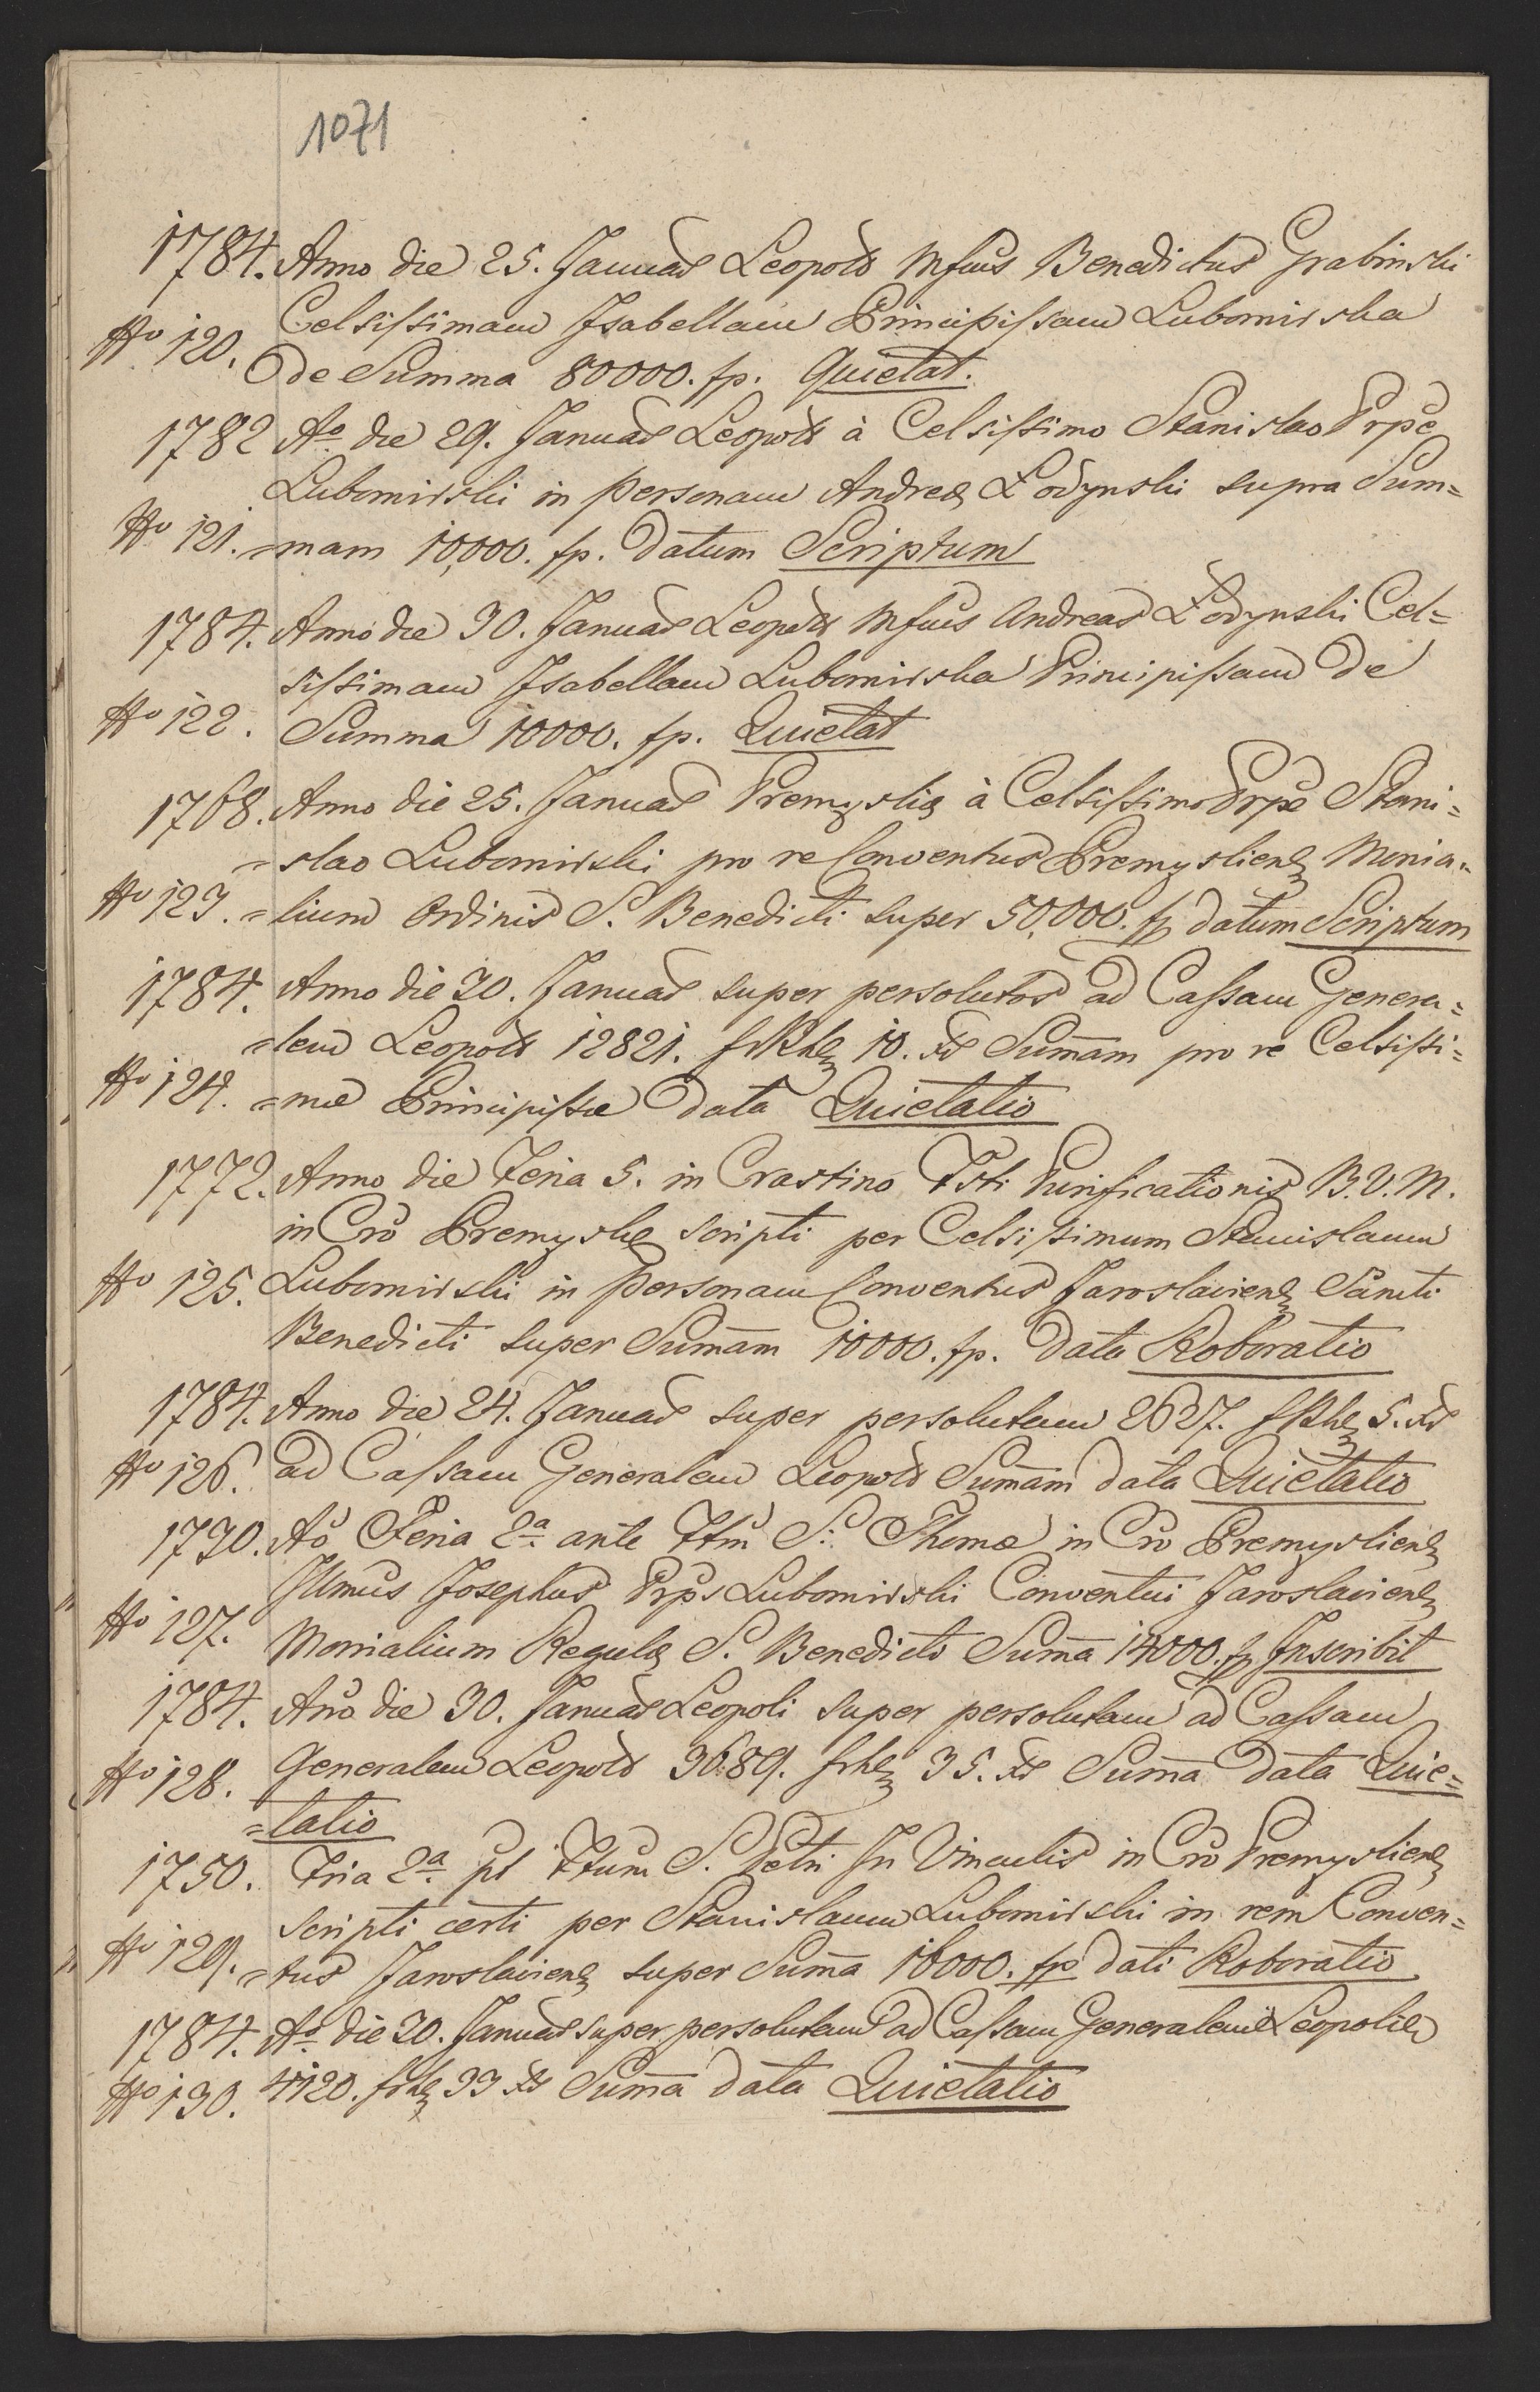 1071
1784. Anno die 25. Januar Leopold Mfcus Benedictus Grabinski
No 120. Celsissimam Isabellam Principissam Lubomirska
de Summa 80000. fp. Quietat.
1782 Ao die 29. Januar Leopold à Celsissimo Stanislao Prpe
Lubomirski in personam Andreæ Łodynski supra Sum=
No 121. =mam 10,000. fp. datum Scriptum
1784. Anno die 30. Januar Leopold Mfcus Andreas Łodynski Cel=
sissimam Isabellam Lubomirska Principissam de
No 122. Summa 10000. fp. Quietat
1768. Anno die 25. Januar Premysliæ à Celsissimo Prpe Stani=
=slao Lubomirski pro re Conventus Premyslien Monia=
No 123. =lium Ordinis S. Benedicti super 50,000. fp datum Scriptum
1784. Anno die 20. Januar super persolutos ad Cassam Genera=
=lem Leopold 12821. fRhn 10. Xr Sumam pro re Celsissi=
No 124. =mæ Principissæ data Quietatio
1772. Anno die Feria 5. in Crastino Fsti Purificationis B. V. M.
in Cro Premysliæ scripti per Celsissimum Stanislaum
No 125. Lubomirski in Personam Conventus Jaroslavien Sancti
Benedicti super Sumam 10000. fp. data Roboratio
1784. Anno die 24. Januar super persolutam 2627. fRhn 5. Xr
No 126. ad Cassam Generalem Leopold Sumam data Quietatio
1730. Ao Feria 2a ante Ftm S. Thomæ in Cro Premyslien
Illmus Josephus Prps Lubomirski Conventui Jaroslavien
No 127. Monialium Regulæ S. Benedicti Suma 14000. fp Inscribit
1784. Ano die 30. Januar Leopoli super persolutam ad Cassam
No 128. Generalem Leopold 3689. frhn 35. Xr Suma data Quie=
=tatio
1750. Fria 2a pt Ftum S. Petri In Vinculis in Cro Premyslien
scripti certi per Stanislaum Lubomirski in rem Conven=
No 129. =tus Jaroslavien super Suma 16000. fp dati Roboratio
1784. Ao die 20. Januar super persolutam ad Cassam Generalem Leopolien
No 130. 4120. frhn 33 Xr Suma data Quietatio